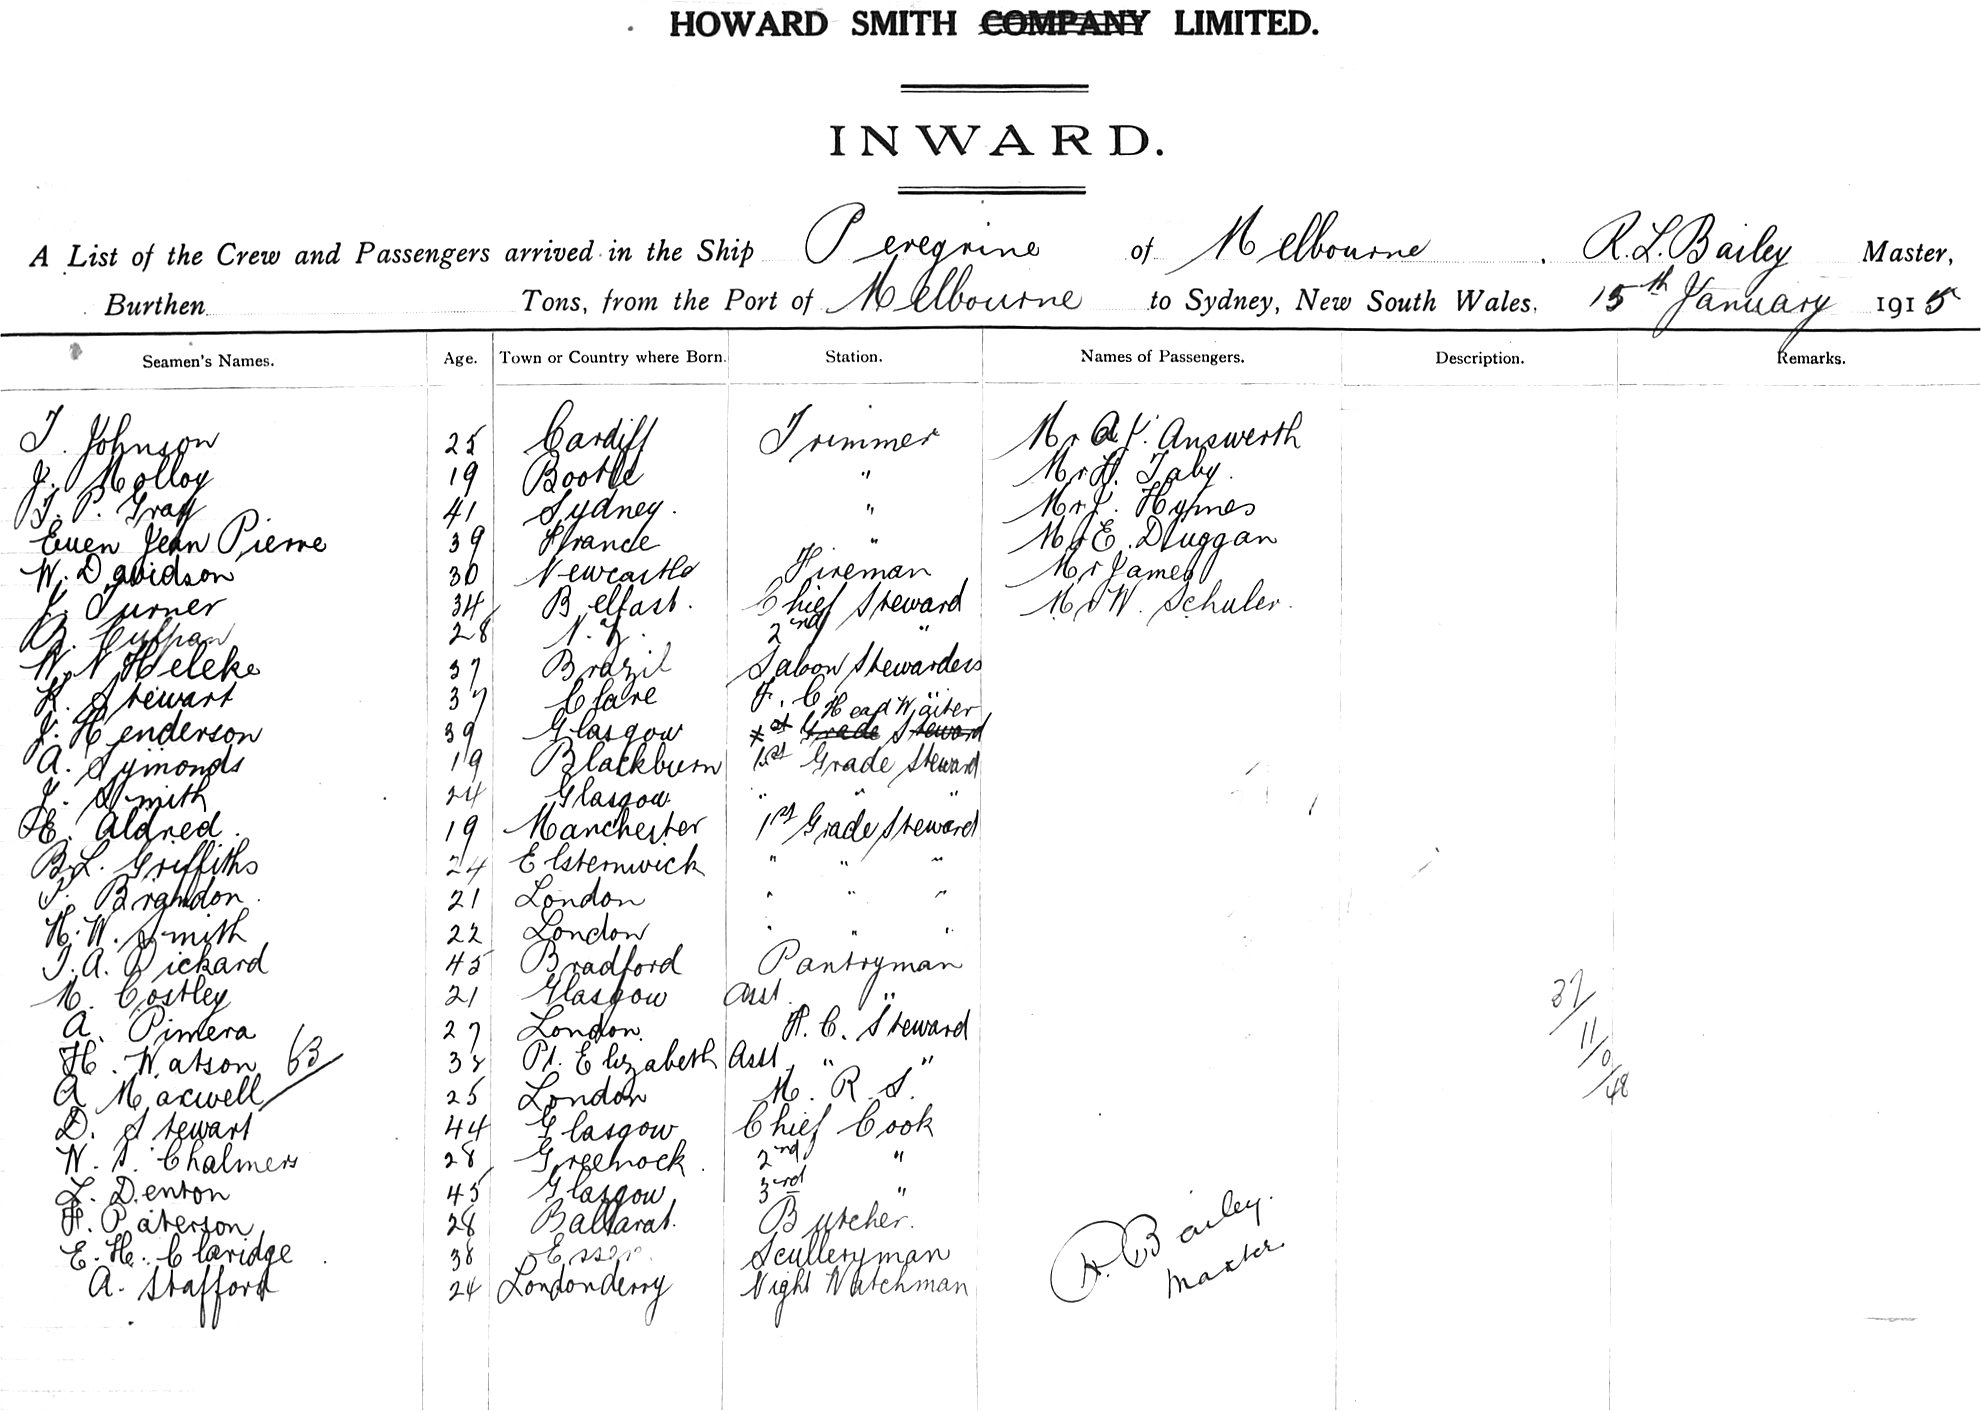 HOWARD SMITH COMPANY LIMITED.
INWARD.
A List of the Crew and Passengers arrived in the Ship Peregrine of Melbourne . R. L. Bailey Master,
Burthen Tons, from the Port of Melbourne to Sydney, New South Wales, 15th January 1915
Seamen's Names. Age. Town or Country where Born. Station. Names of Passengers. Description. Remarks.
T. Johnson 25 Cardiff Trimmer Mr A. J. Answorth
J. Molloy 19 Bootle " Mr H. Taby.
T. P. Gray 41 Sydney. " Mr J. Hymes
Euen Jean Pierre 39 France " Mr E. Duggan
W. Davidson 30 Newcastle Fireman Mr James
J. Turner 34 Belfast. Chief Steward Mr W. Schuler.
28 N.Z. 2nd "
W. N. Heleke 37 Brazil Saloon Stewardess
K. Stewart 37 Clare F. C. "
J. Henderson 39 Glasgow Head Waiter 1st Grade Steward
A. Symonds 19 Blackburn 1st Grade Steward
J. Smith 24 Glasgow " " "
H. Aldred. 19 Manchester 1st Grade Steward
B. L. Griffiths 24 Elsternwick " " "
P. Brandon. 21 London " " "
H. W. Smith 22 London " " "
T. A. Pickard 45 Bradford Pantryman
M. Costley 21 Glasgow Asst. "
A. Pimera 27 London. F. C. Steward
H. Watson 63 38 Pt. Elizabeth Asst " "
A Maxwell 25 London M. R. S.
D. Stewart 44 Glasgow Chief Cook
W. S. Chalmers 28 Greenock. 2nd "
L. Denton 45 Glasgow 3rd "
F. Paterson 28 Ballarat. Butcher.
E. H. Claridge 38 Essex. Sculleryman
A. Stafford 24 Londonderry Night Watchman
37/
11/0
/48
R. Bailey.
Master